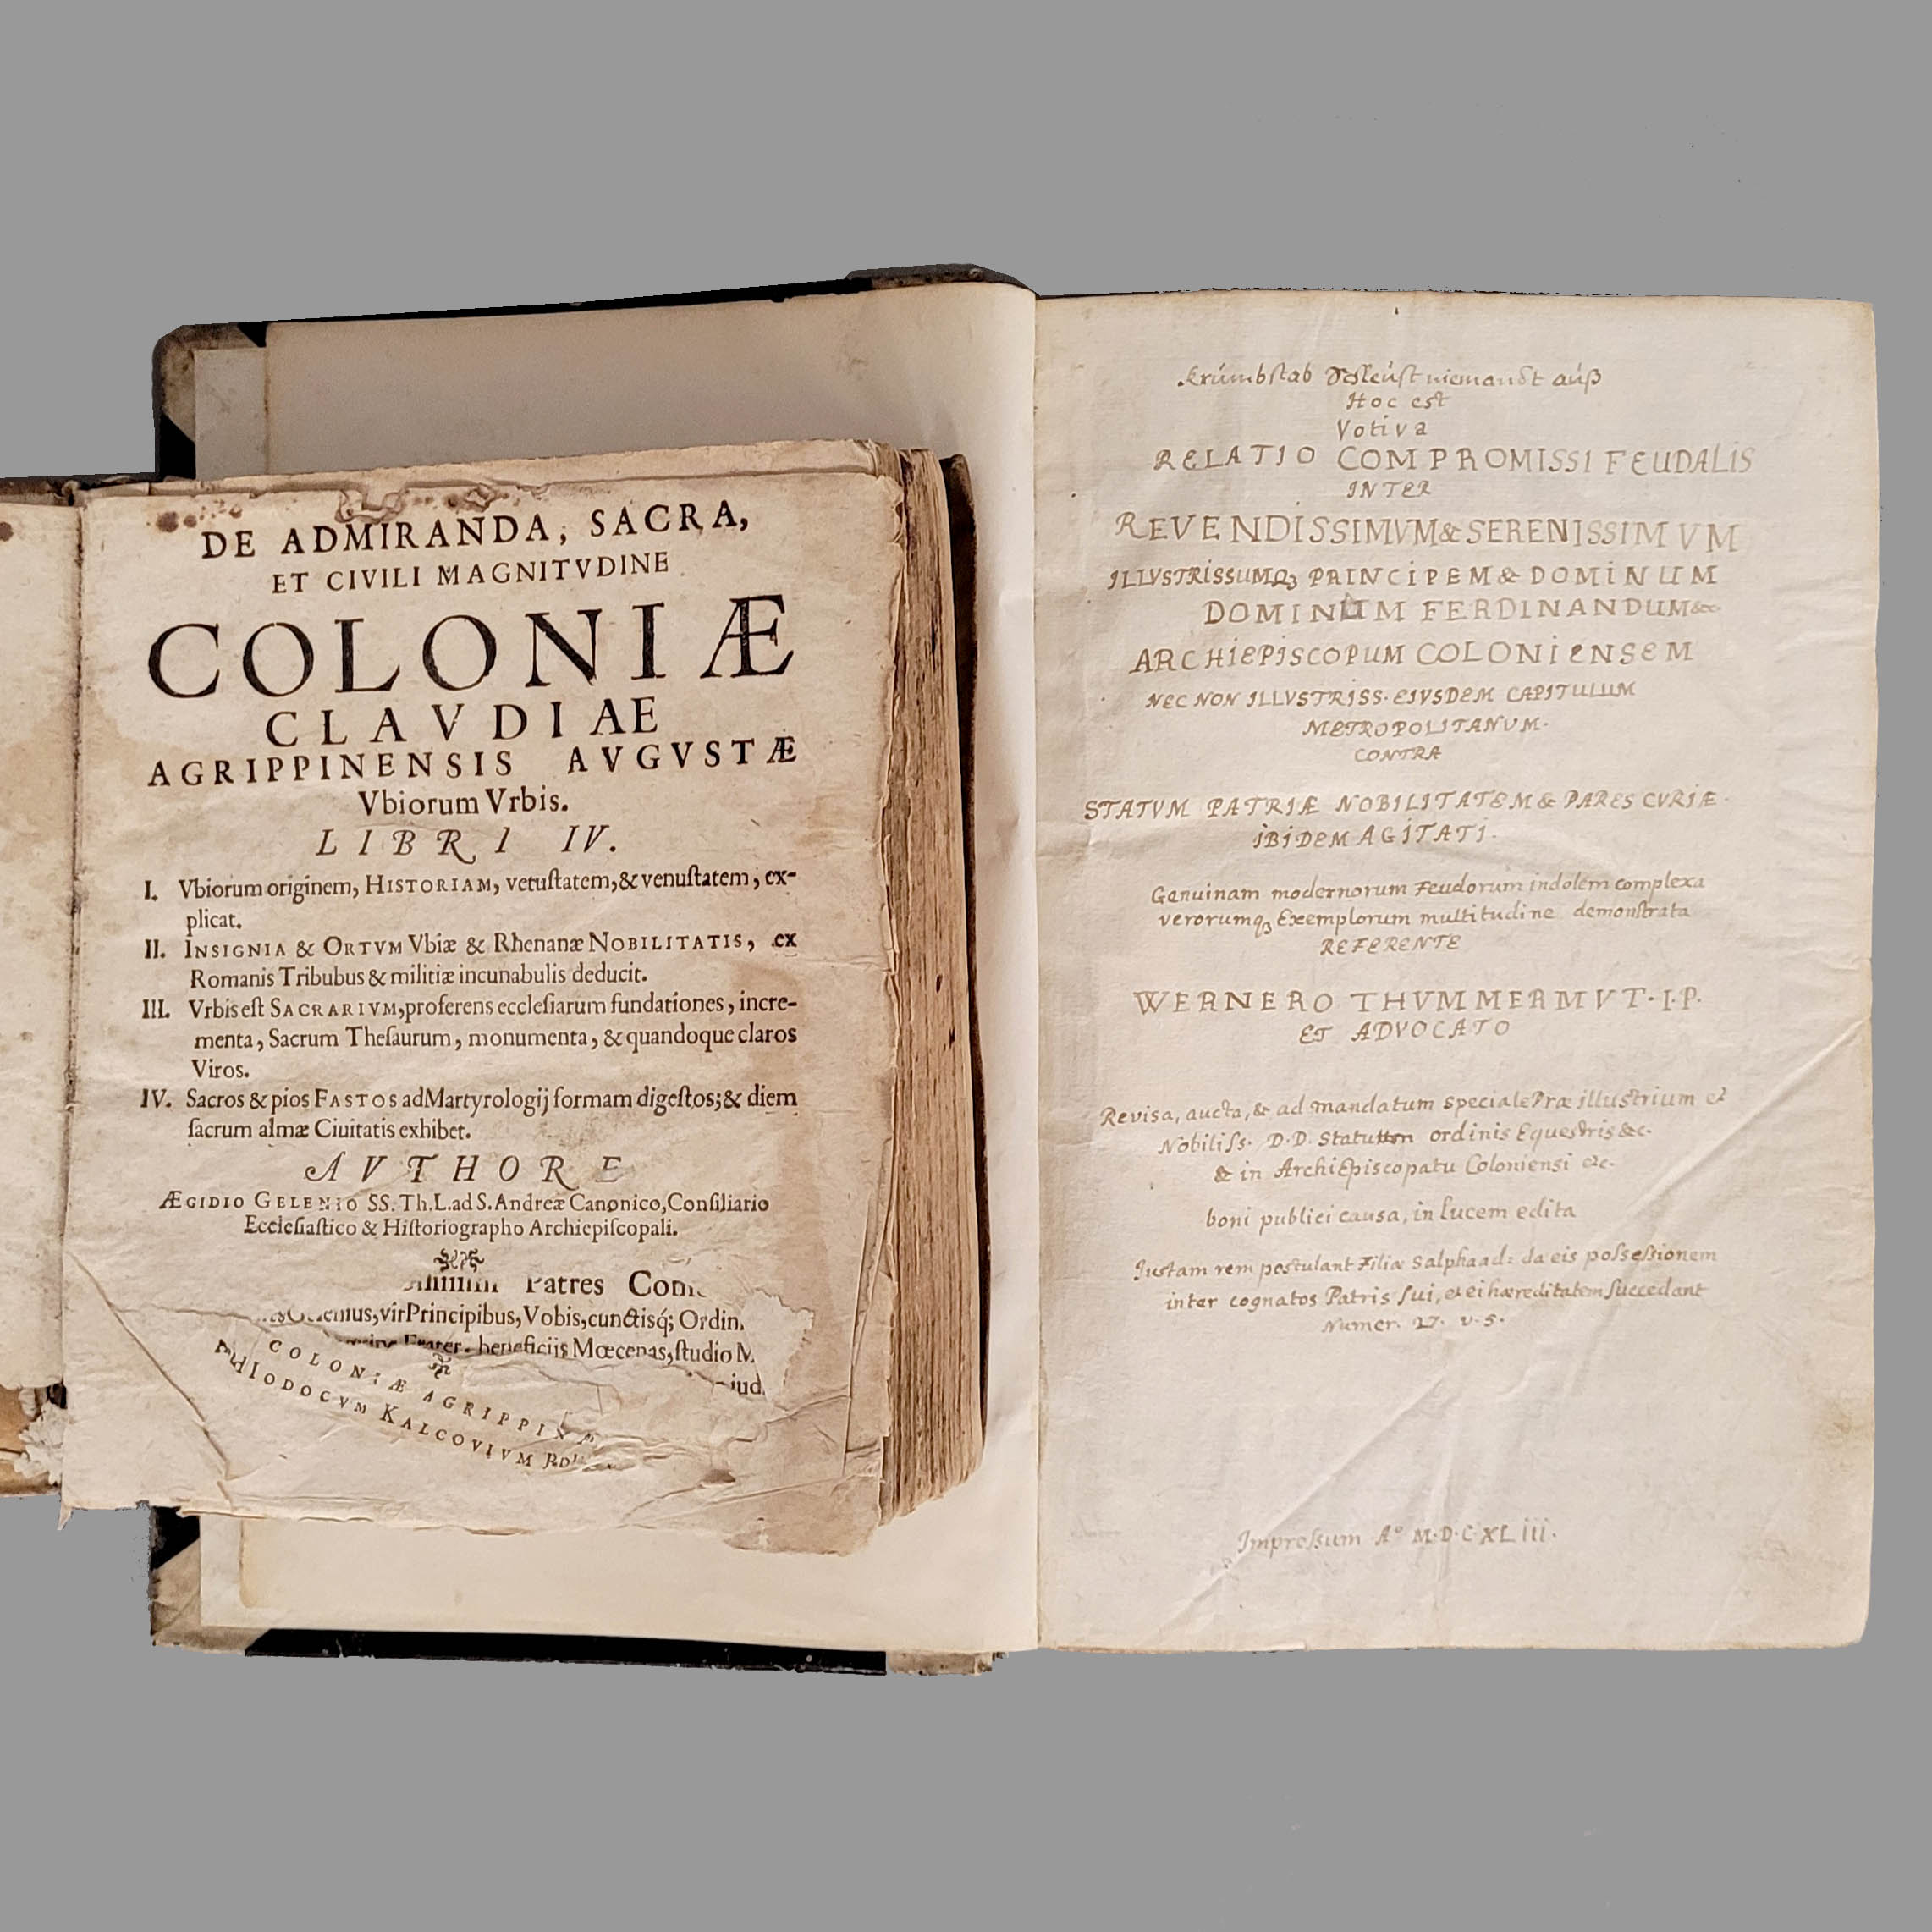 DE ADMIRANDA, SACRA,
ET CIVILI MAGNITVDINE
COLONIÆ
CLAVDIAE
AGRIPPINENSIS AVGVSTÆ
Vbiorum Vrbis.
LIBRI IV.
I. Vbiorum originem, HISTORIAM, vetuſtatem, & venuſtatem, ex-
plicat.
II. INSIGNIA & ORTVM Vbiæ & Rhenanæ NOBILITATIS, ex
Romanis Tribubus & militiæ incunabulis deducit.
III. Vrbis eſt SACRARIVM, proferens eccleſiarum fundationes, incre-
menta, Sacrum Theſaurum, monumenta, & quandoque claros
Viros.
IV. Sacros & pios FASTOS ad Martyrologij formam digeſtos; & diem
ſacrum almæ Ciuitatis exhibet.
AVTHORE
ÆGIDIO GELENIO SS. Th. L. ad S. Andreæ Canonico, Conſiliario
Eccleſiaſtico & Hiſtoriographo Archiepiſcopali.
Patres
vir Principibus, Vobis, cunctisq́;
beneficijs Mœcenas, ſtudio
COLONIÆ AGRIPPINÆ
Ad IODOCVM KALCOVIVM
Krúmbſtab Schleúſt niemandt aúß
Hoc est
Votiva
RELATIO COMPROMISSI FEUDALIS
INTER
REVENDISSIMVM & SERENISSIMVM
ILLVSTRISSUMQꝫ PRINCIPEM & DOMINUM
DOMINUM FERDINANDUM &c
ARCHIEPISCOPUM COLONIENSEM
NEC NON ILLVSTRISS. EIVSDEM CAPITULUM
METROPOLITANVM.
CONTRA
STATVM PATRIÆ NOBILITATEM & PARES CVRIÆ.
IBIDEM AGITATI.
Genuinam modernorum Feudorum indolem complexa
verorumqꝫ Exemplorum multitudine demonſtrata
REFERENTE
WERNERO THVMMERMVT. I. P.
ET ADVOCATO
Revisa, aucta, & ad mandatum speciale Præ illustrium et
Nobiliſs. D. D. ordinis Equestris &c.
& in ArchiEpiscopatu Coloniensi etc.
boni publici causa, in lucem edita
Justam rem postulant Filiæ Salphaad: da eis poſseſsionem
inter cognatos Patris ſui, et ei hæreditatem ſuccedant
Numer. 27. v. 5.
Impreſsum Aº M.D.C.XLiii.